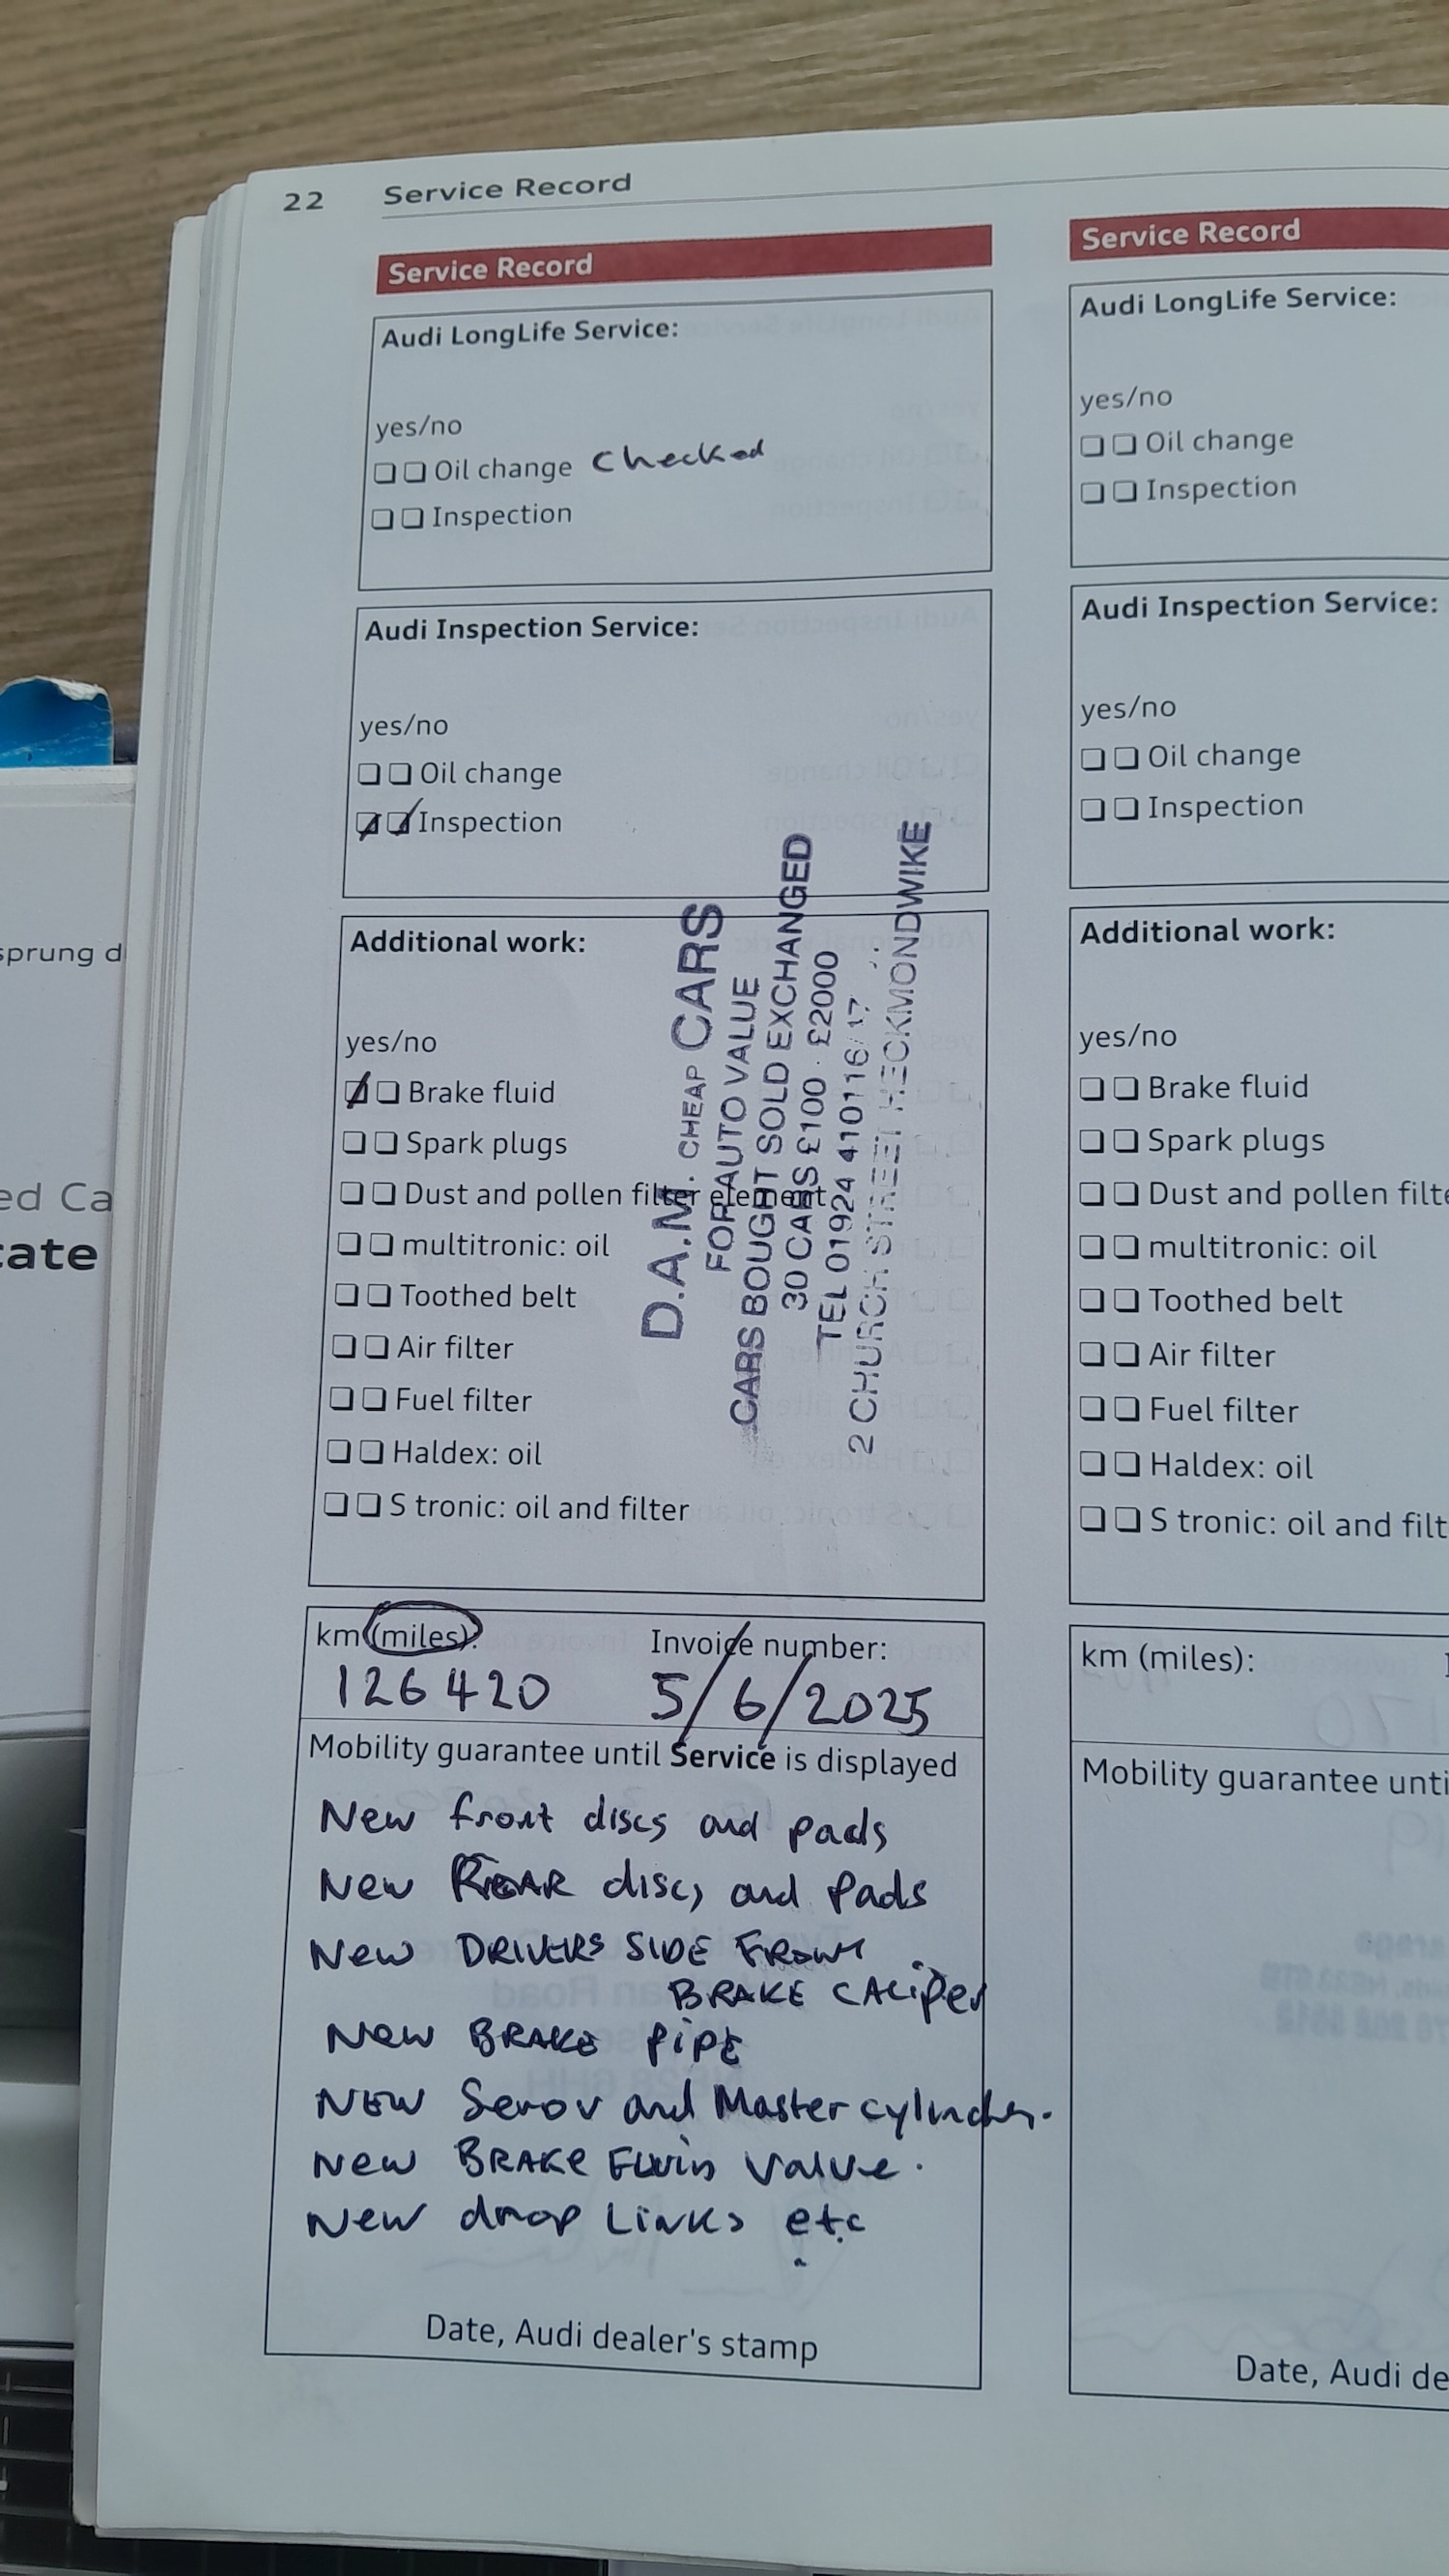 22 Service Record
Service Record
Audi LongLife Service:
yes/no
Oil change checked
Inspection
Audi Inspection Service:
yes/no
Oil change
Inspection
Additional work:
yes/no
Brake fluid
Spark plugs
Dust and pollen filter element
multitronic: oil
Toothed belt
Air filter
Fuel filter
Haldex: oil
S tronic: oil and filter
D.A.M. CHEAP CARS
FOR AUTO VALUE
CARS BOUGHT SOLD EXCHANGED
30 CARS £100 · £2000
TEL 01924 410116/17
2 CHURCH STREET HECKMONDWIKE
km (miles): Invoice number:
126420 5/6/2025
Mobility guarantee until Service is displayed
New front discs and pads
New REAR discs and Pads
New DRIVERS SIDE FRONT
BRAKE CALIPER
New BRAKE PIPE
NEW Servov and Master cylinder.
New BRAKE FLUID Valve.
New drop Links etc
Date, Audi dealer's stamp
Service Record
Audi LongLife Service:
yes/no
Oil change
Inspection
Audi Inspection Service:
yes/no
Oil change
Inspection
Additional work:
yes/no
Brake fluid
Spark plugs
Dust and pollen filte
multitronic: oil
Toothed belt
Air filter
Fuel filter
Haldex: oil
S tronic: oil and filt
km (miles):
Mobility guarantee unti
Date, Audi de
sprung d
ed Ca
cate